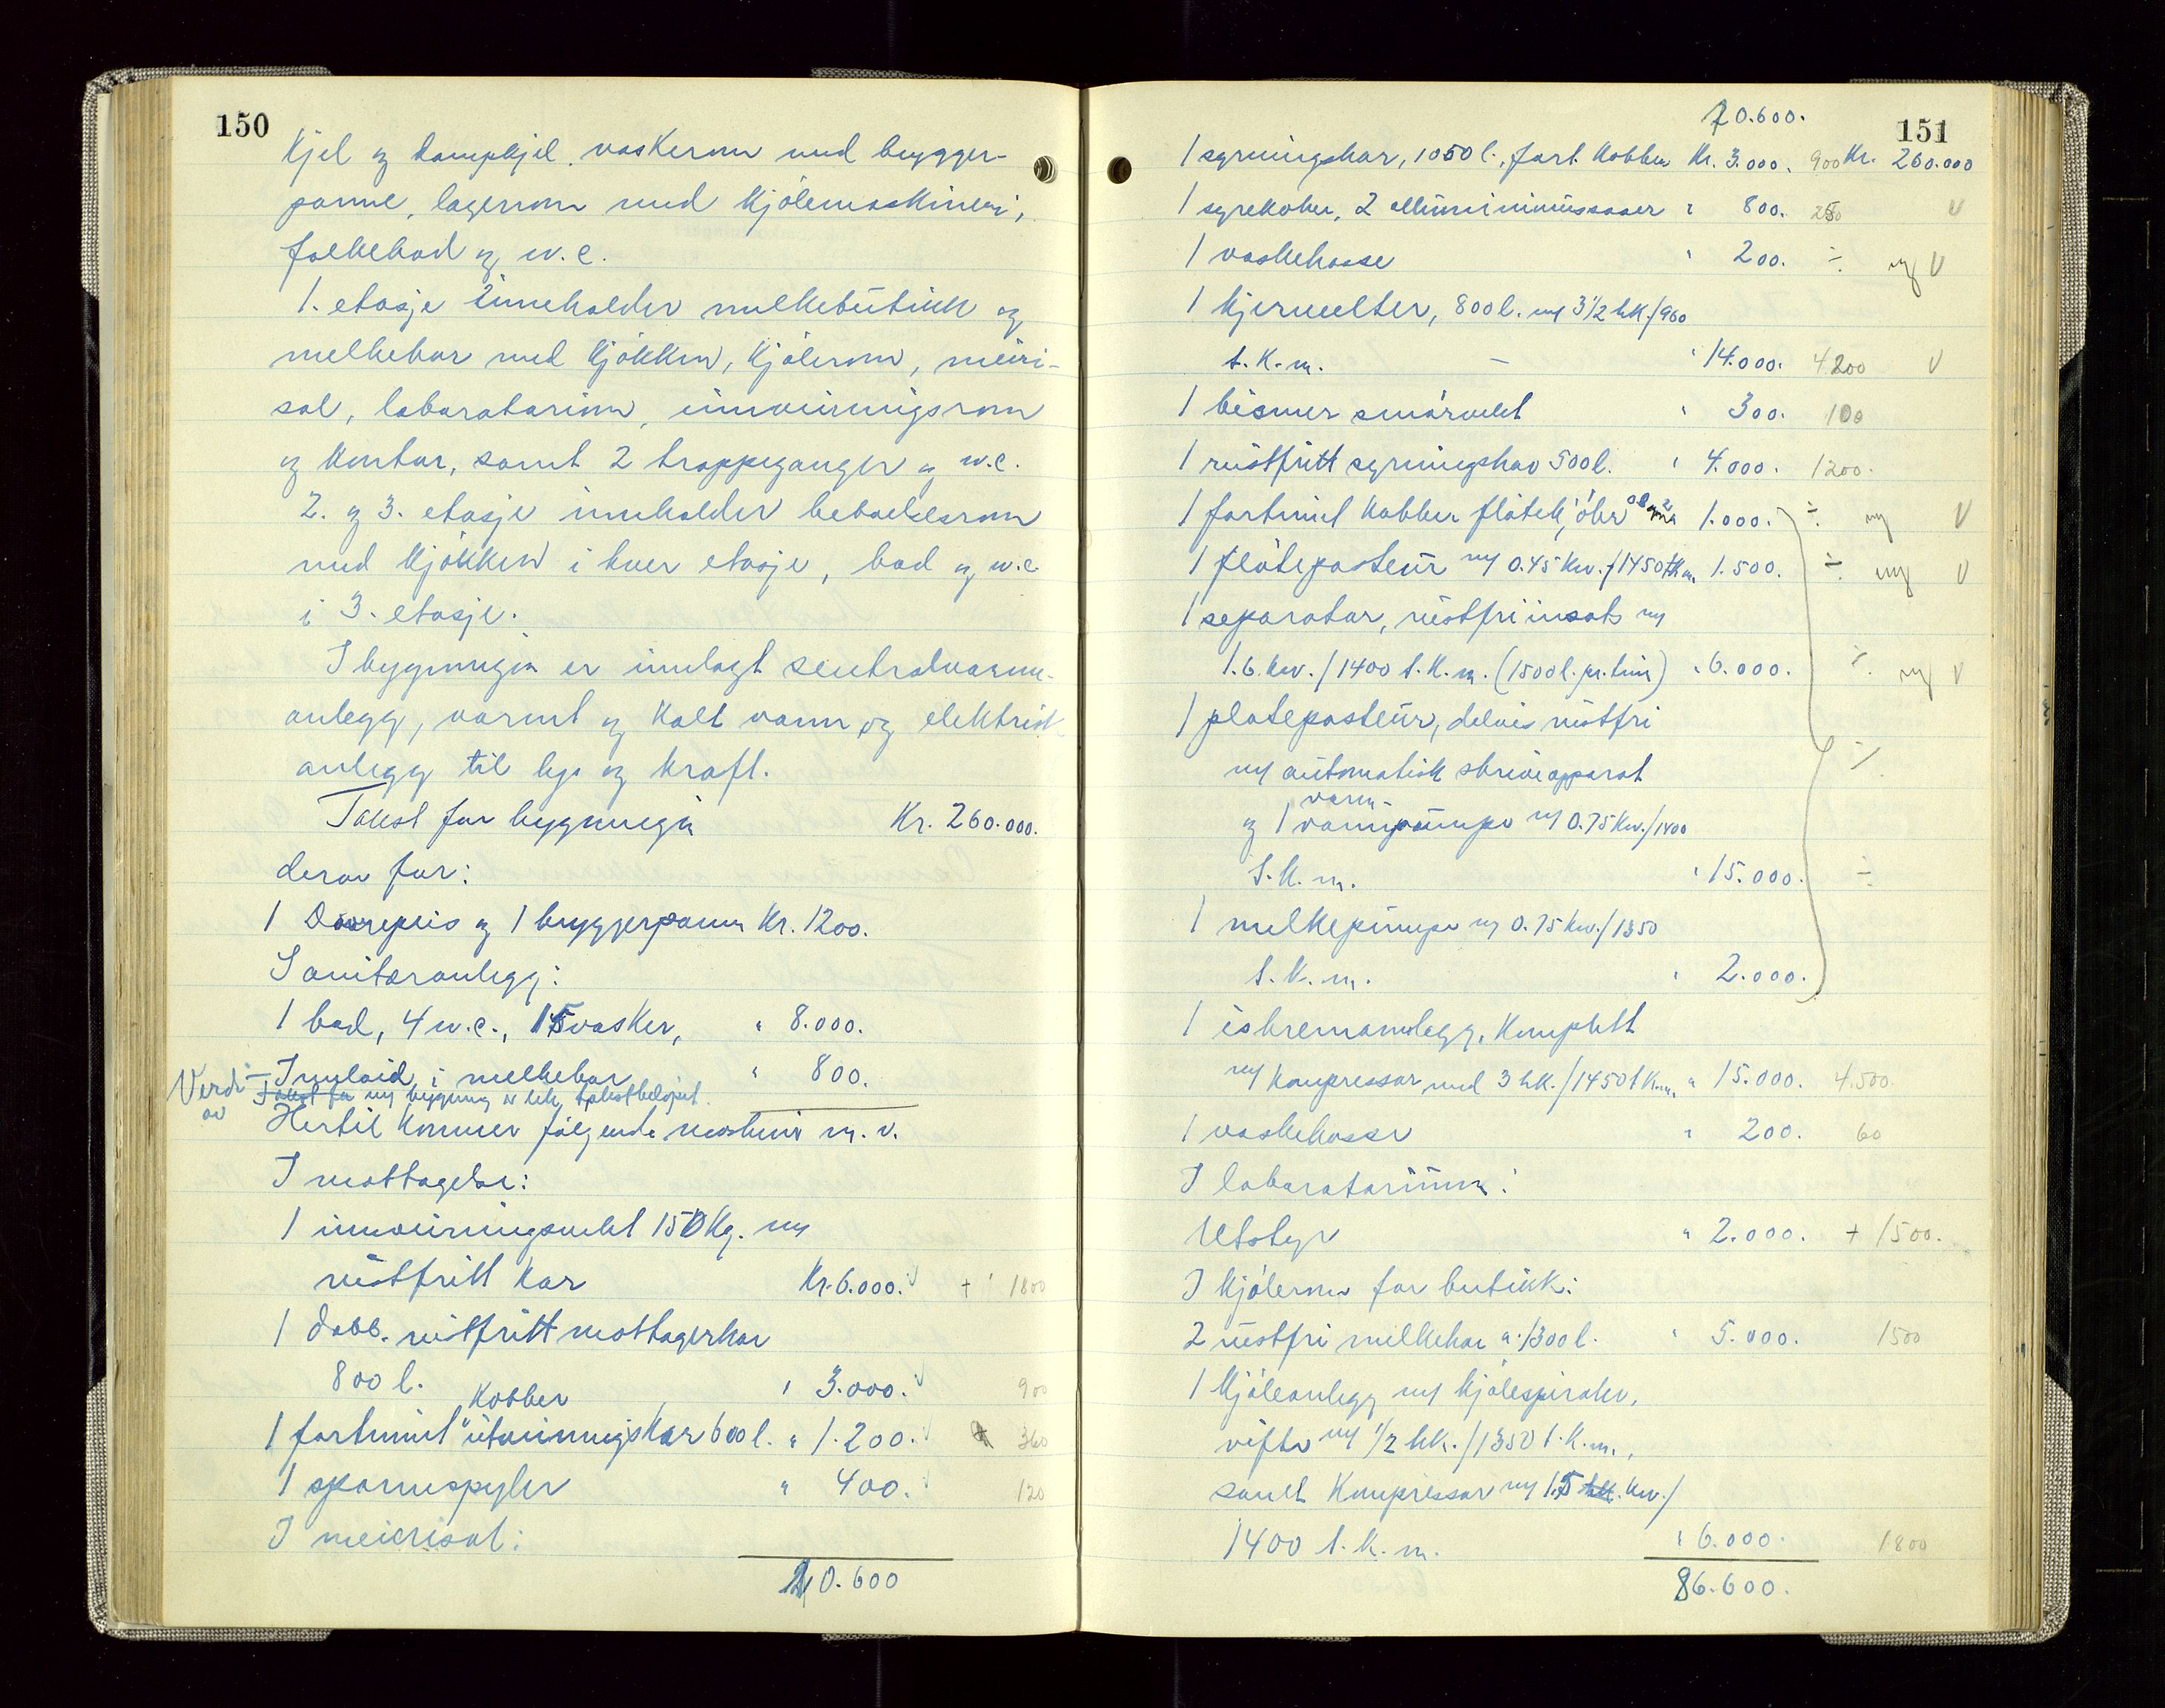 150
Kjel og dampkjel, vaskerom med brygger-
panne, lagerrom med kjølemaskineri,
folkebad og w.c.
1. etasje inneholder melkebutikk og
melkebar med kjøkken, kjølerom, meieri-
sal, laboratorium, innveiningsrom
og kontor, samt 2 trappeganger og w.c.
2. og 3. etasje inneholder beboelsesrom
med kjøkken i hver etasje, bad og w.c.
i 3. etasje.
I bygningen er innlagt sentralvarme-
anlegg, varmt og kalt vann og elektrisk
anlegg til lys og kraft.
Takst for bygningen Kr. 260.000.
derav for:
1 bryggerpanne Kr. 1200.
Sanitæranlegg:
1 bad, 4 w.c., 15 vasker, " 8.000.
Innlaid i melkebar " 800.
Verdi av ny bygning er lik takstbeløpet.
Hertil kommer følgende maskiner m.v.
I mottagelse:
1 innveiningsvekt 150 Kg. m/
rustfritt kar Kr. 6.000. + 1800
1 dobb. rustfritt mottagerkar
800 l. " 3.000. 900
Kobber
1 fortinnet utveiningskar 600 l. " 1.200. 360
1 spannspyler " 400. 120
I meierisal:
10.600
151
10.600.
1 syrningskar, 1050 l., fort. kobber Kr. 3.000. 900 Kr. 260.000
1 syrekoker, 2 alluminiumsspaner " 800. 250 V
1 vaskekasse " 200. ÷ ny V
1 kjerneelter, 800 l. m/ 3 1/2 hk./960
t.k.m. — " 14.000. 4200 V
1 bismer smørvekt " 300. 100
1 rustfritt syrningskar 500 l. " 4.000. 1200.
1 fortinnet kobber fløtekjøler 1.000. ÷ ny V
1 fløtepasteur m/ 0.45 Kw./1450 tkm. 1.500. ÷ ny V
1 separator, rustfri insats m/
1.6 kw./1400 t.k.m. (1500 l. pr. time) " 6.000. ÷ ny V
1 platepasteur, delvis rustfri
m/ automatisk skriveapparat ÷
varm-
og 1 vannpumpe m/ 0.75 Kw./1400
t.k.m. " 15.000. ÷
1 melkepumpe m/ 0.75 kw./1350
t.k.m. " 2.000.
1 iskremanlegg, komplett
m/ kompressor med 3 hk./1450 t.k.m. " 15.000. 4.500.
1 vaskekasse " 200. 60
I laboratorium:
Utstyr " 2.000. + 1500.
I kjølerom for butikk:
2 rustfri melkekar a. 1300 l. " 5.000. 1500
1 kjøleanlegg m/ kjølespiraler,
vifte m/ 1/2 hk./1350 t.k.m.,
samt kompressor m/ 1,5 kw./
1400 t.k.m. " 6.000. 1800
86.600.